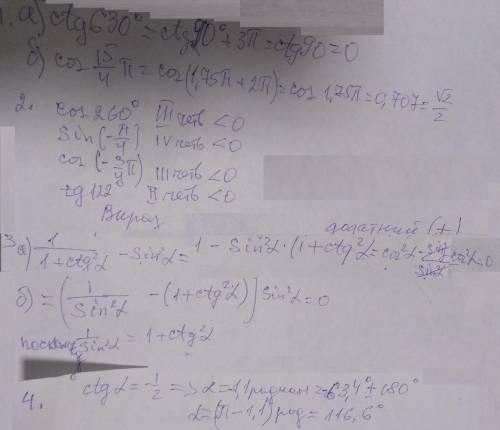 1. а) ctg630° = ctg90° + 3π = ctg90 = 0
б) cos 15/4 π = cos(1,75π + 2π) = cos 1,75π = 0,707 = √2/2
2. cos 260° III четв < 0
Sin(-π/4) IV четв < 0
cos(-3/4 π) III четв < 0
tg 122 II четв < 0
Вираз додатний (+)
3 а) 1/(1+ctg²α) - Sin²α = 1 - Sin²α · (1+ctg²α = cos²α - Sin²α/Sin²α cos²α = 0
б) = (1/Sin²α - (1+ctg²α)] Sin²α = 0
1/Sin²α = 1 + ctg²α
4. ctg α = -1/2 => α = -1,1 радиан = -63,4° ± 180°
α = (π - 1,1) рад = 116,6°